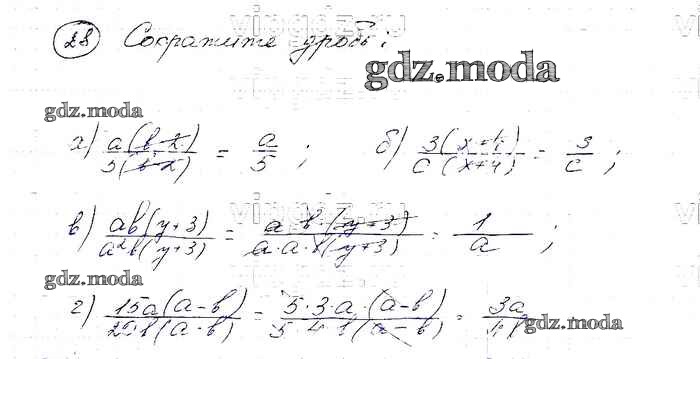 28 Сократите дробь:
gdz.moda
gdz.moda
а) a(b-2)/5(b-2) = a/5 ; б) 3(x+4)/c(x+4) = 3/c ;
в) ab(y+3)/a²b(y+3) = a·b·(y+3)/a·a·b(y+3) = 1/a ;
gdz.moda
г) 15a(a-b)/20b(a-b) = 5·3·a·(a-b)/5·4·b(a-b) = 3a/4b
gdz.moda